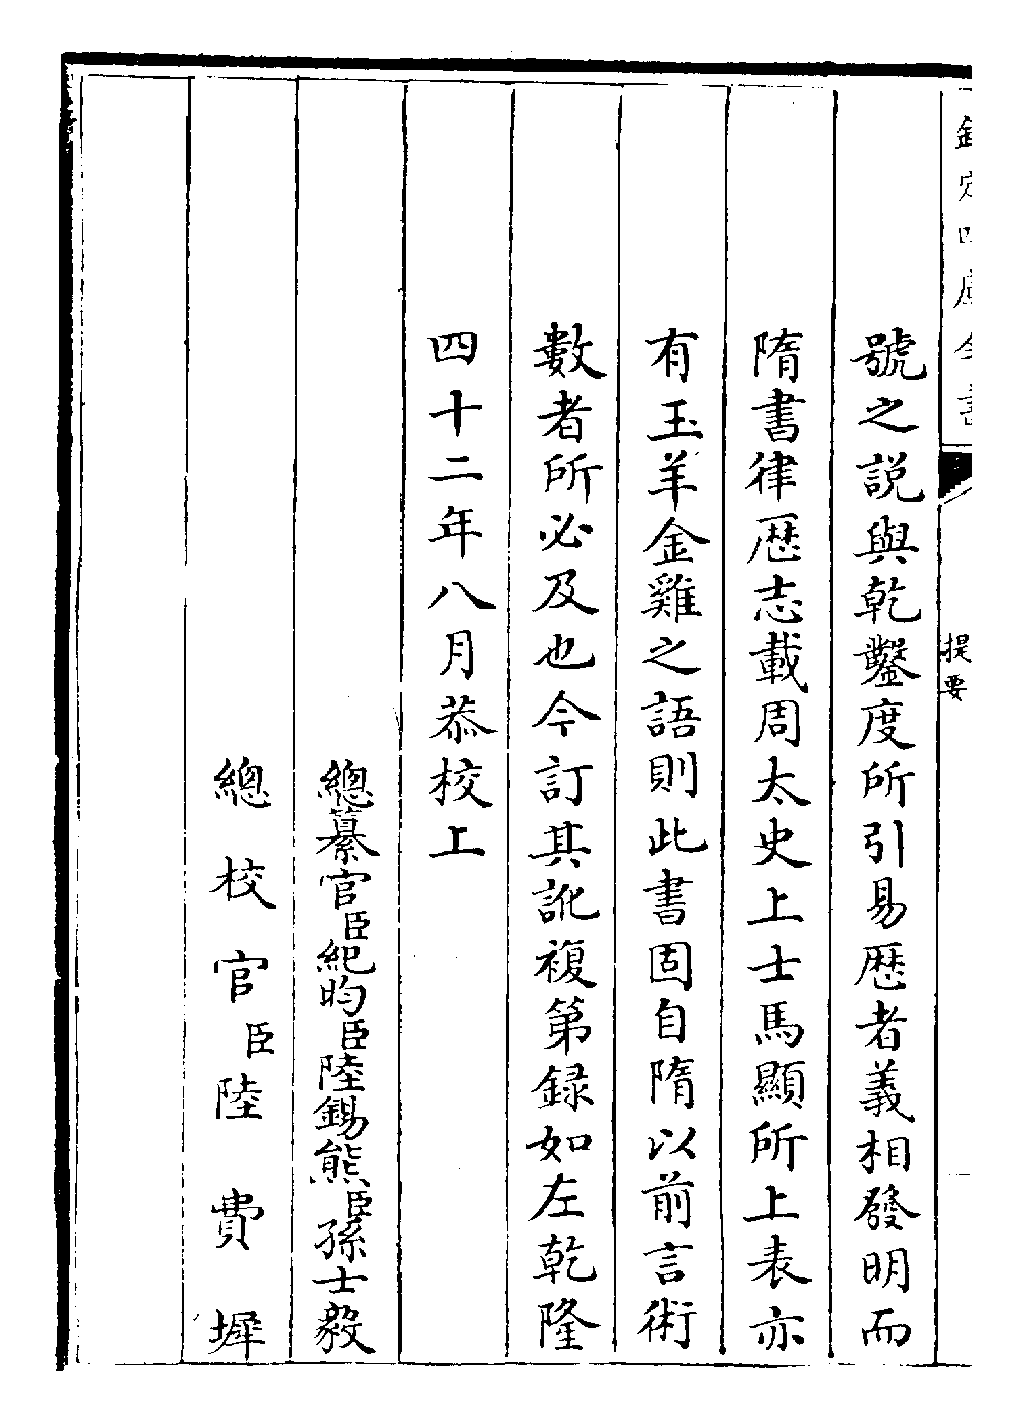 欽定四庫全書
提要
號之説與乾鑿度所引易歴者義相發明而
隋書律歴志載周太史上士馬顯所上表亦
有玉羊金雞之語則此書固自隋以前言術
數者所必及也今訂其訛複第録如左乾隆
四十二年八月恭校上
總纂官臣紀昀臣陸錫熊臣孫士毅
總校官臣陸費墀